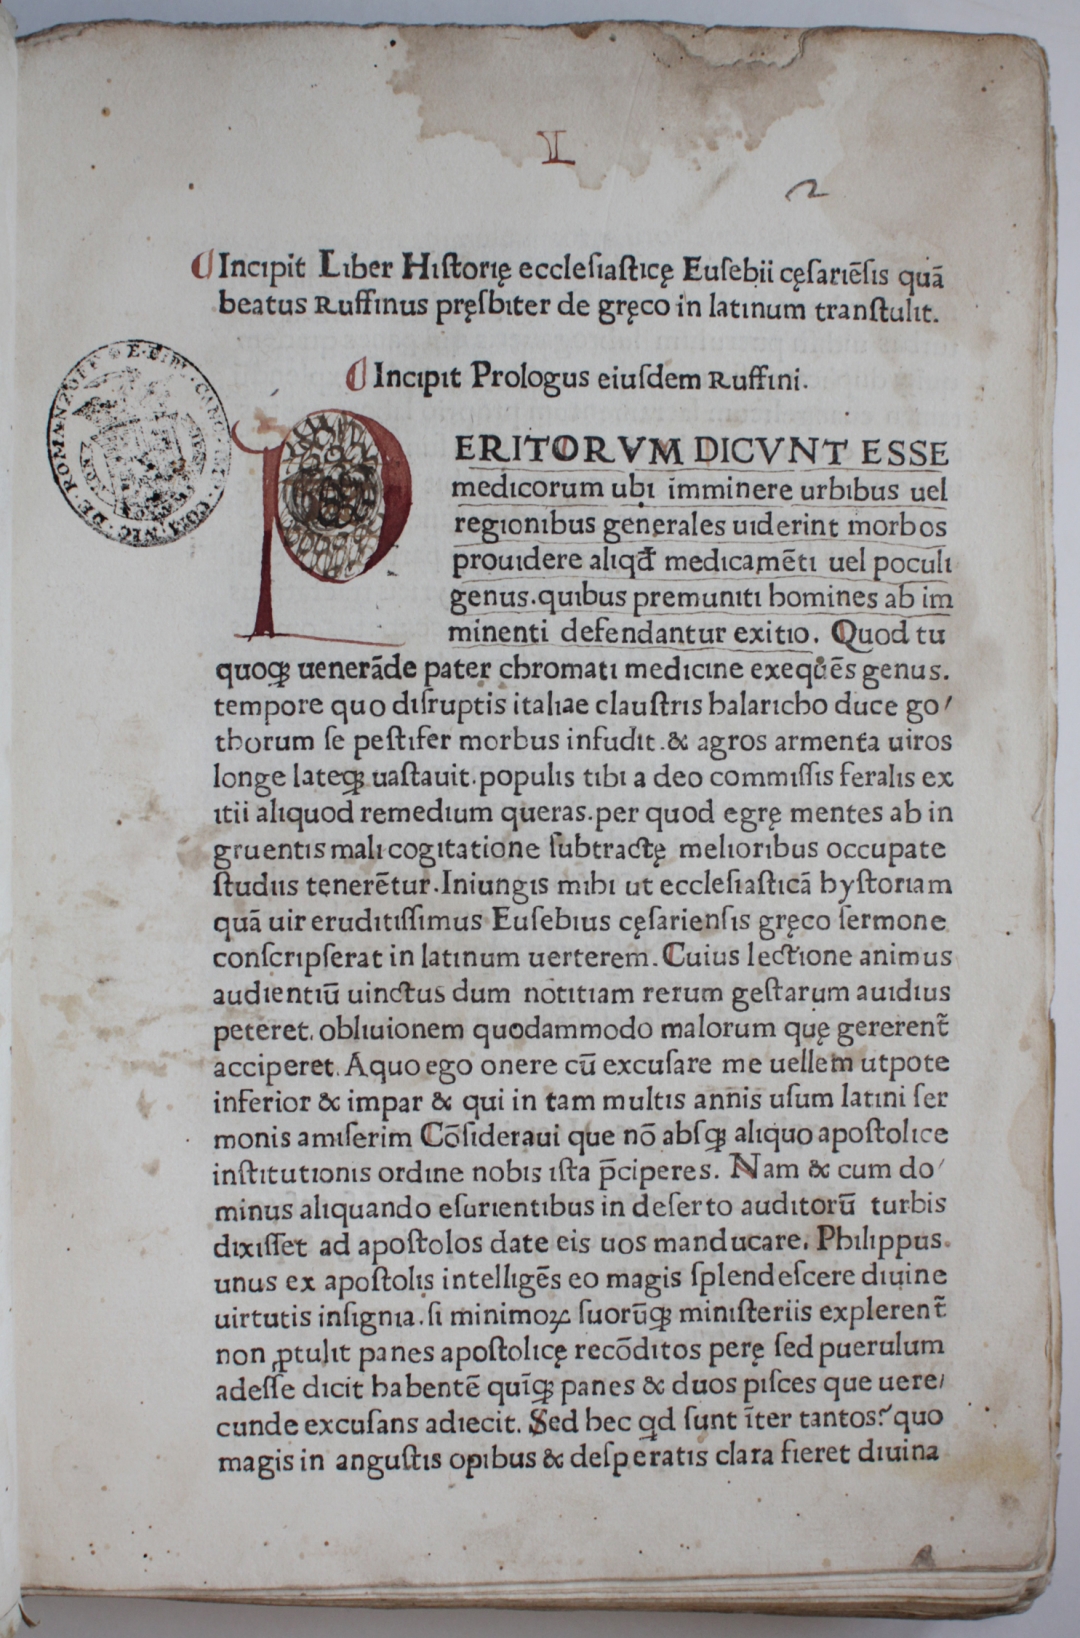 VL
2
Incipit Liber Hiſtorię eccleſiaſticę Euſebii cęſariēſis quā
beatus Ruffinus pręſbiter de gręco in latinum tranſtulit.
Incipit Prologus eiuſdem Ruffini.
PERITORVM DICVNT ESSE
medicorum ubi imminere urbibus uel
regionibus generales uiderint morbos
prouidere aliqđ medicamēti uel poculi
genus.quibus premuniti homines ab im
minenti defendantur exitio. Quod tu
quoqꝫ uenerāde pater chromati medicine exequēs genus.
tempore quo diſruptis italiae clauſtris halaricho duce go/
thorum ſe peſtifer morbus infudit.& agros armenta uiros
longe lateqꝫ uaſtauit.populis tibi a deo commiſſis feralis ex
itii aliquod remedium queras.per quod egrę mentes ab in
gruentis mali cogitatione ſubtractę melioribus occupate
ſtudiis tenerētur.Iniungis mihi ut eccleſiaſticā hyſtoriam
quā uir eruditiſſimus Euſebius cęſarienſis gręco ſermone
conſcripſerat in latinum uerterem. Cuius lectione animus
audientiū uinctus dum notitiam rerum geſtarum auidius
peteret. obliuionem quodammodo malorum quę gererent̃
acciperet. Aquo ego onere cū excuſare me uellem utpote
inferior & impar & qui in tam multis annis uſum latini ſer
monis amiſerim Cōſideraui que nō abſqꝫ aliquo apoſtolice
inſtitutionis ordine nobis iſta p̄ciperes. Nam & cum do/
minus aliquando eſurientibus in deſerto auditorū turbis
dixiſſet ad apoſtolos date eis uos manducare. Philippus.
unus ex apoſtolis intelligēs eo magis ſplendeſcere diuine
uirtutis inſignia.ſi minimoꝝ ſuorūqꝫ miniſteriis explerent̃
non ꝓtulit panes apoſtolicę recōditos perę ſed puerulum
adeſſe dicit habentē quīqꝫ panes & duos piſces que uere/
cunde excuſans adiecit. Sed hec qd ſunt īter tantos? quo
magis in anguſtis opibus & deſperatis clara fieret diuina